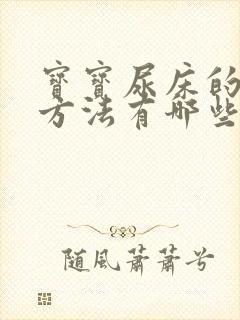 寶寶尿床的
方法有哪些
随風蕭蕭兮